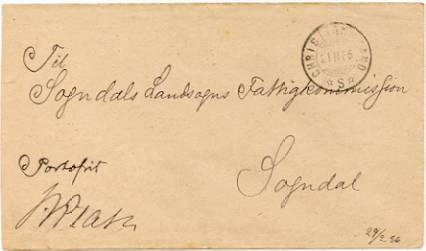 Til
Sogndals Landsogns Fattigkommission
Portofrit
Sogndal
29/2.96